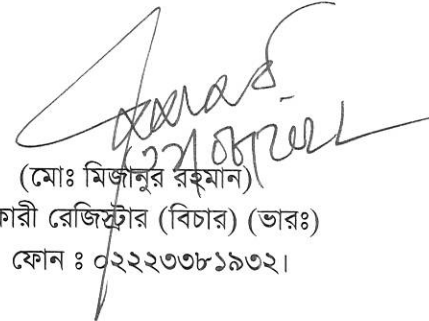 (মোঃ মিজানুর রহমান)
কারী রেজিস্ট্রার (বিচার) (ভারঃ)
ফোন ঃ ০২২২৩৩৮১৯৩২।